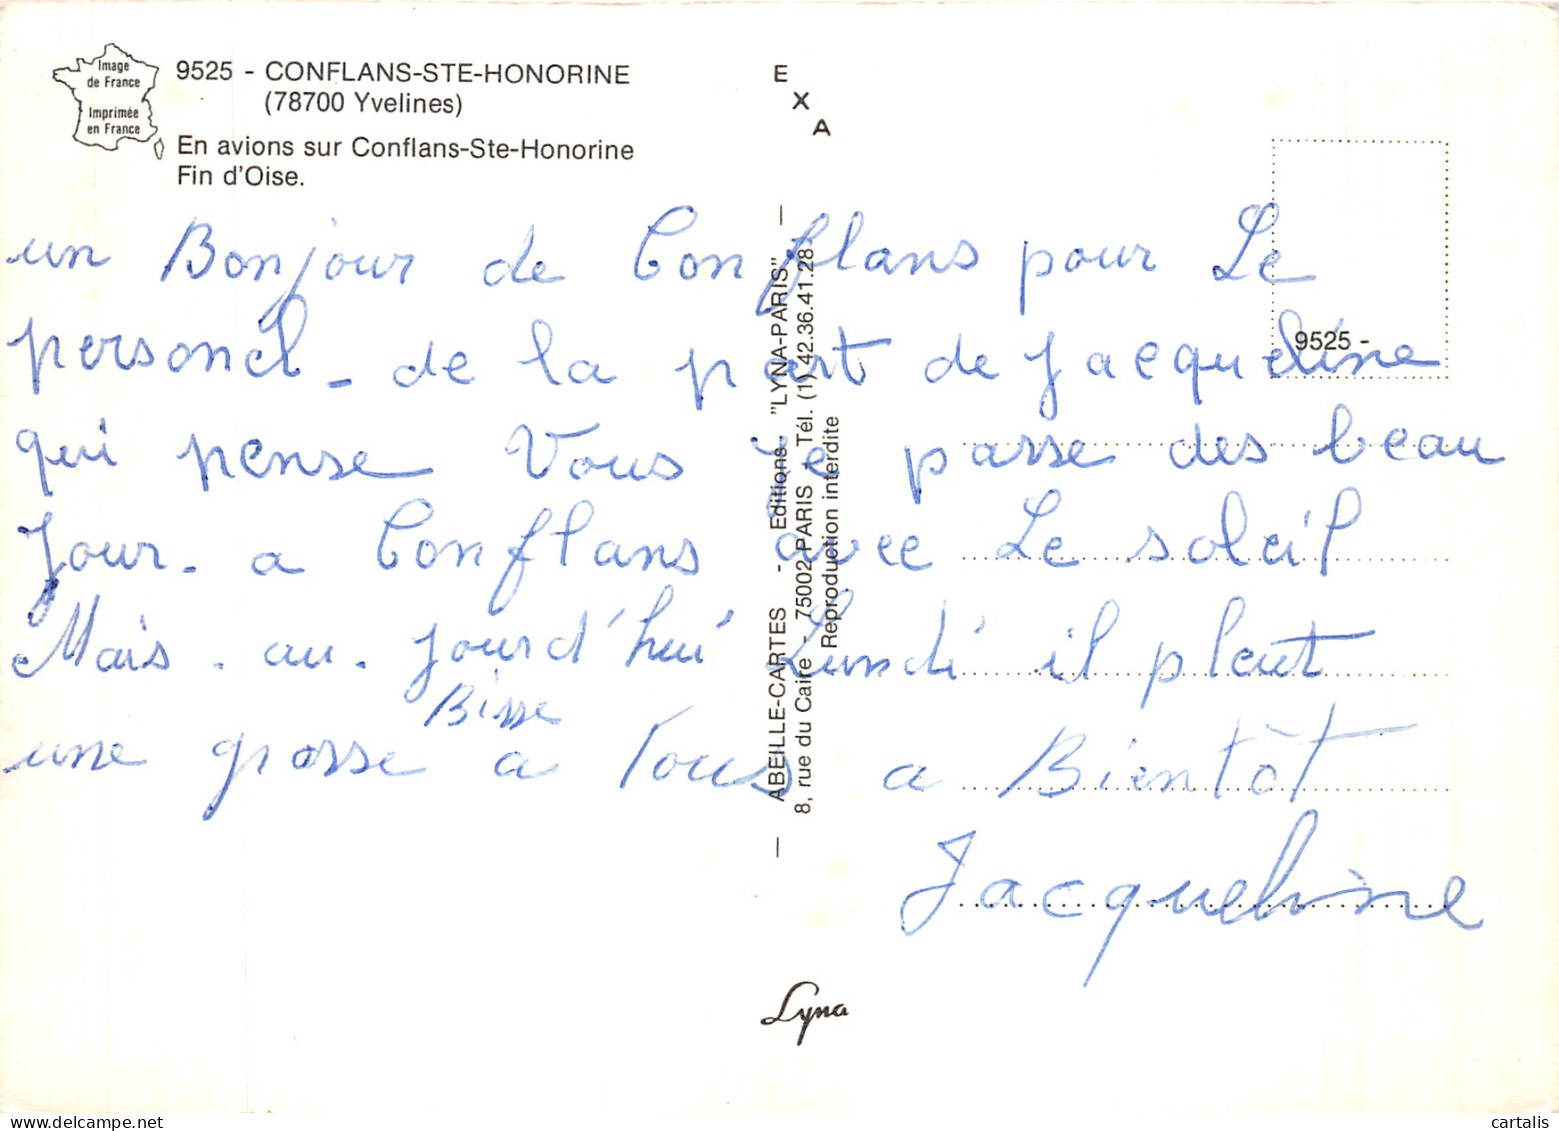 Image
de France
Imprimée
en France
9525 - CONFLANS-STE-HONORINE
(78700 Yvelines)
En avions sur Conflans-Ste-Honorine
Fin d'Oise.
E
X
A
9525 -
un Bonjour de Conflans pour Le
personel - de la part de Jacqueline
qui pense Vous je passe des beau
Jour - a Conflans avec Le soleil
Mais - au - jourd'hui Lundi il pleut
Bisse
une grosse a Tous a Bientôt
Jacqueline
— ABEILLE-CARTES - Editions "LYNA-PARIS" —
8, rue du Caire - 75002 PARIS - Tél. (1) 42.36.41.28
Reproduction interdite
Lyna
cartalis
www.delcampe.net